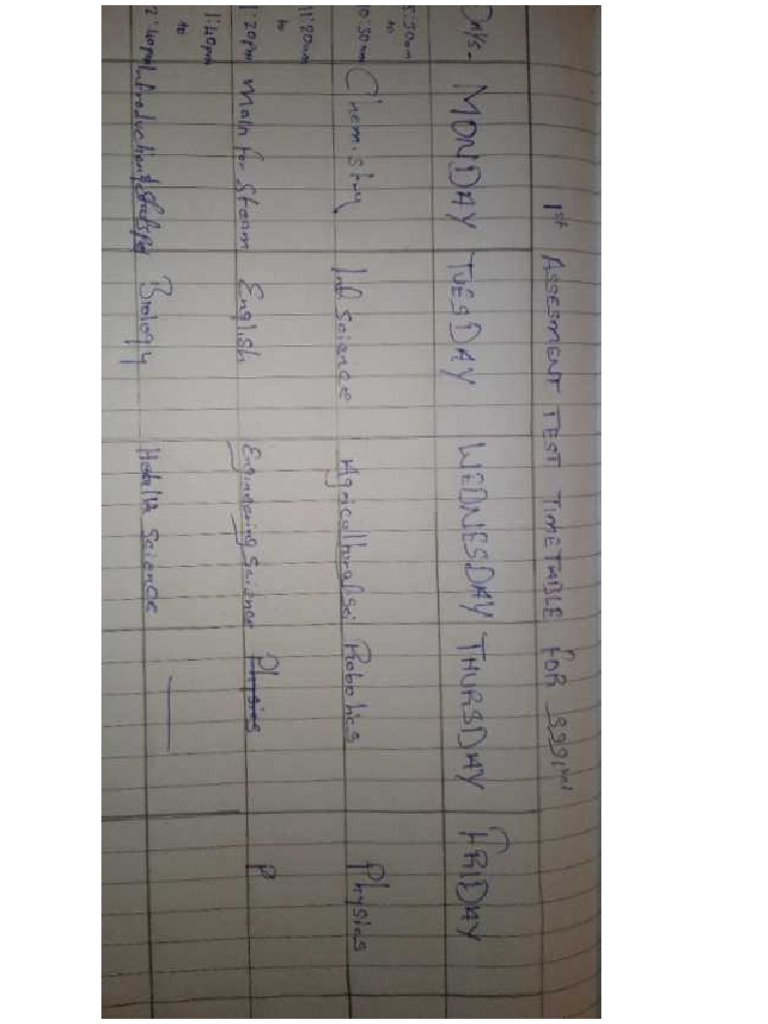 1st ASSESMENT TEST TIMETABLE FOR
Days- MONDAY TUESDAY WEDNESDAY THURSDAY FRIDAY
8:30am to 10:30am Chemistry Int Science Agricultural sci Robotics Physics
11:20am to 1:20pm Math for Steam English Engineering Science Physics P
1:40pm to 2:40pm Introduction Biology Health Science